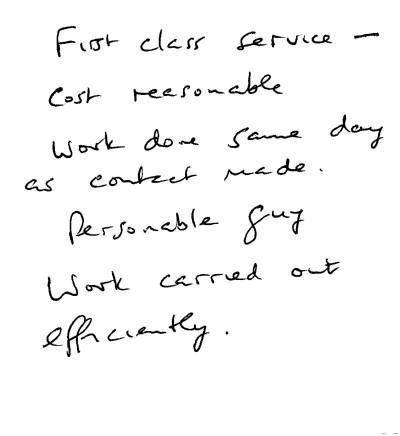 First class service –
Cost reasonable
Work done same day
as contact made.
Personable guy
Work carried out
efficiently.